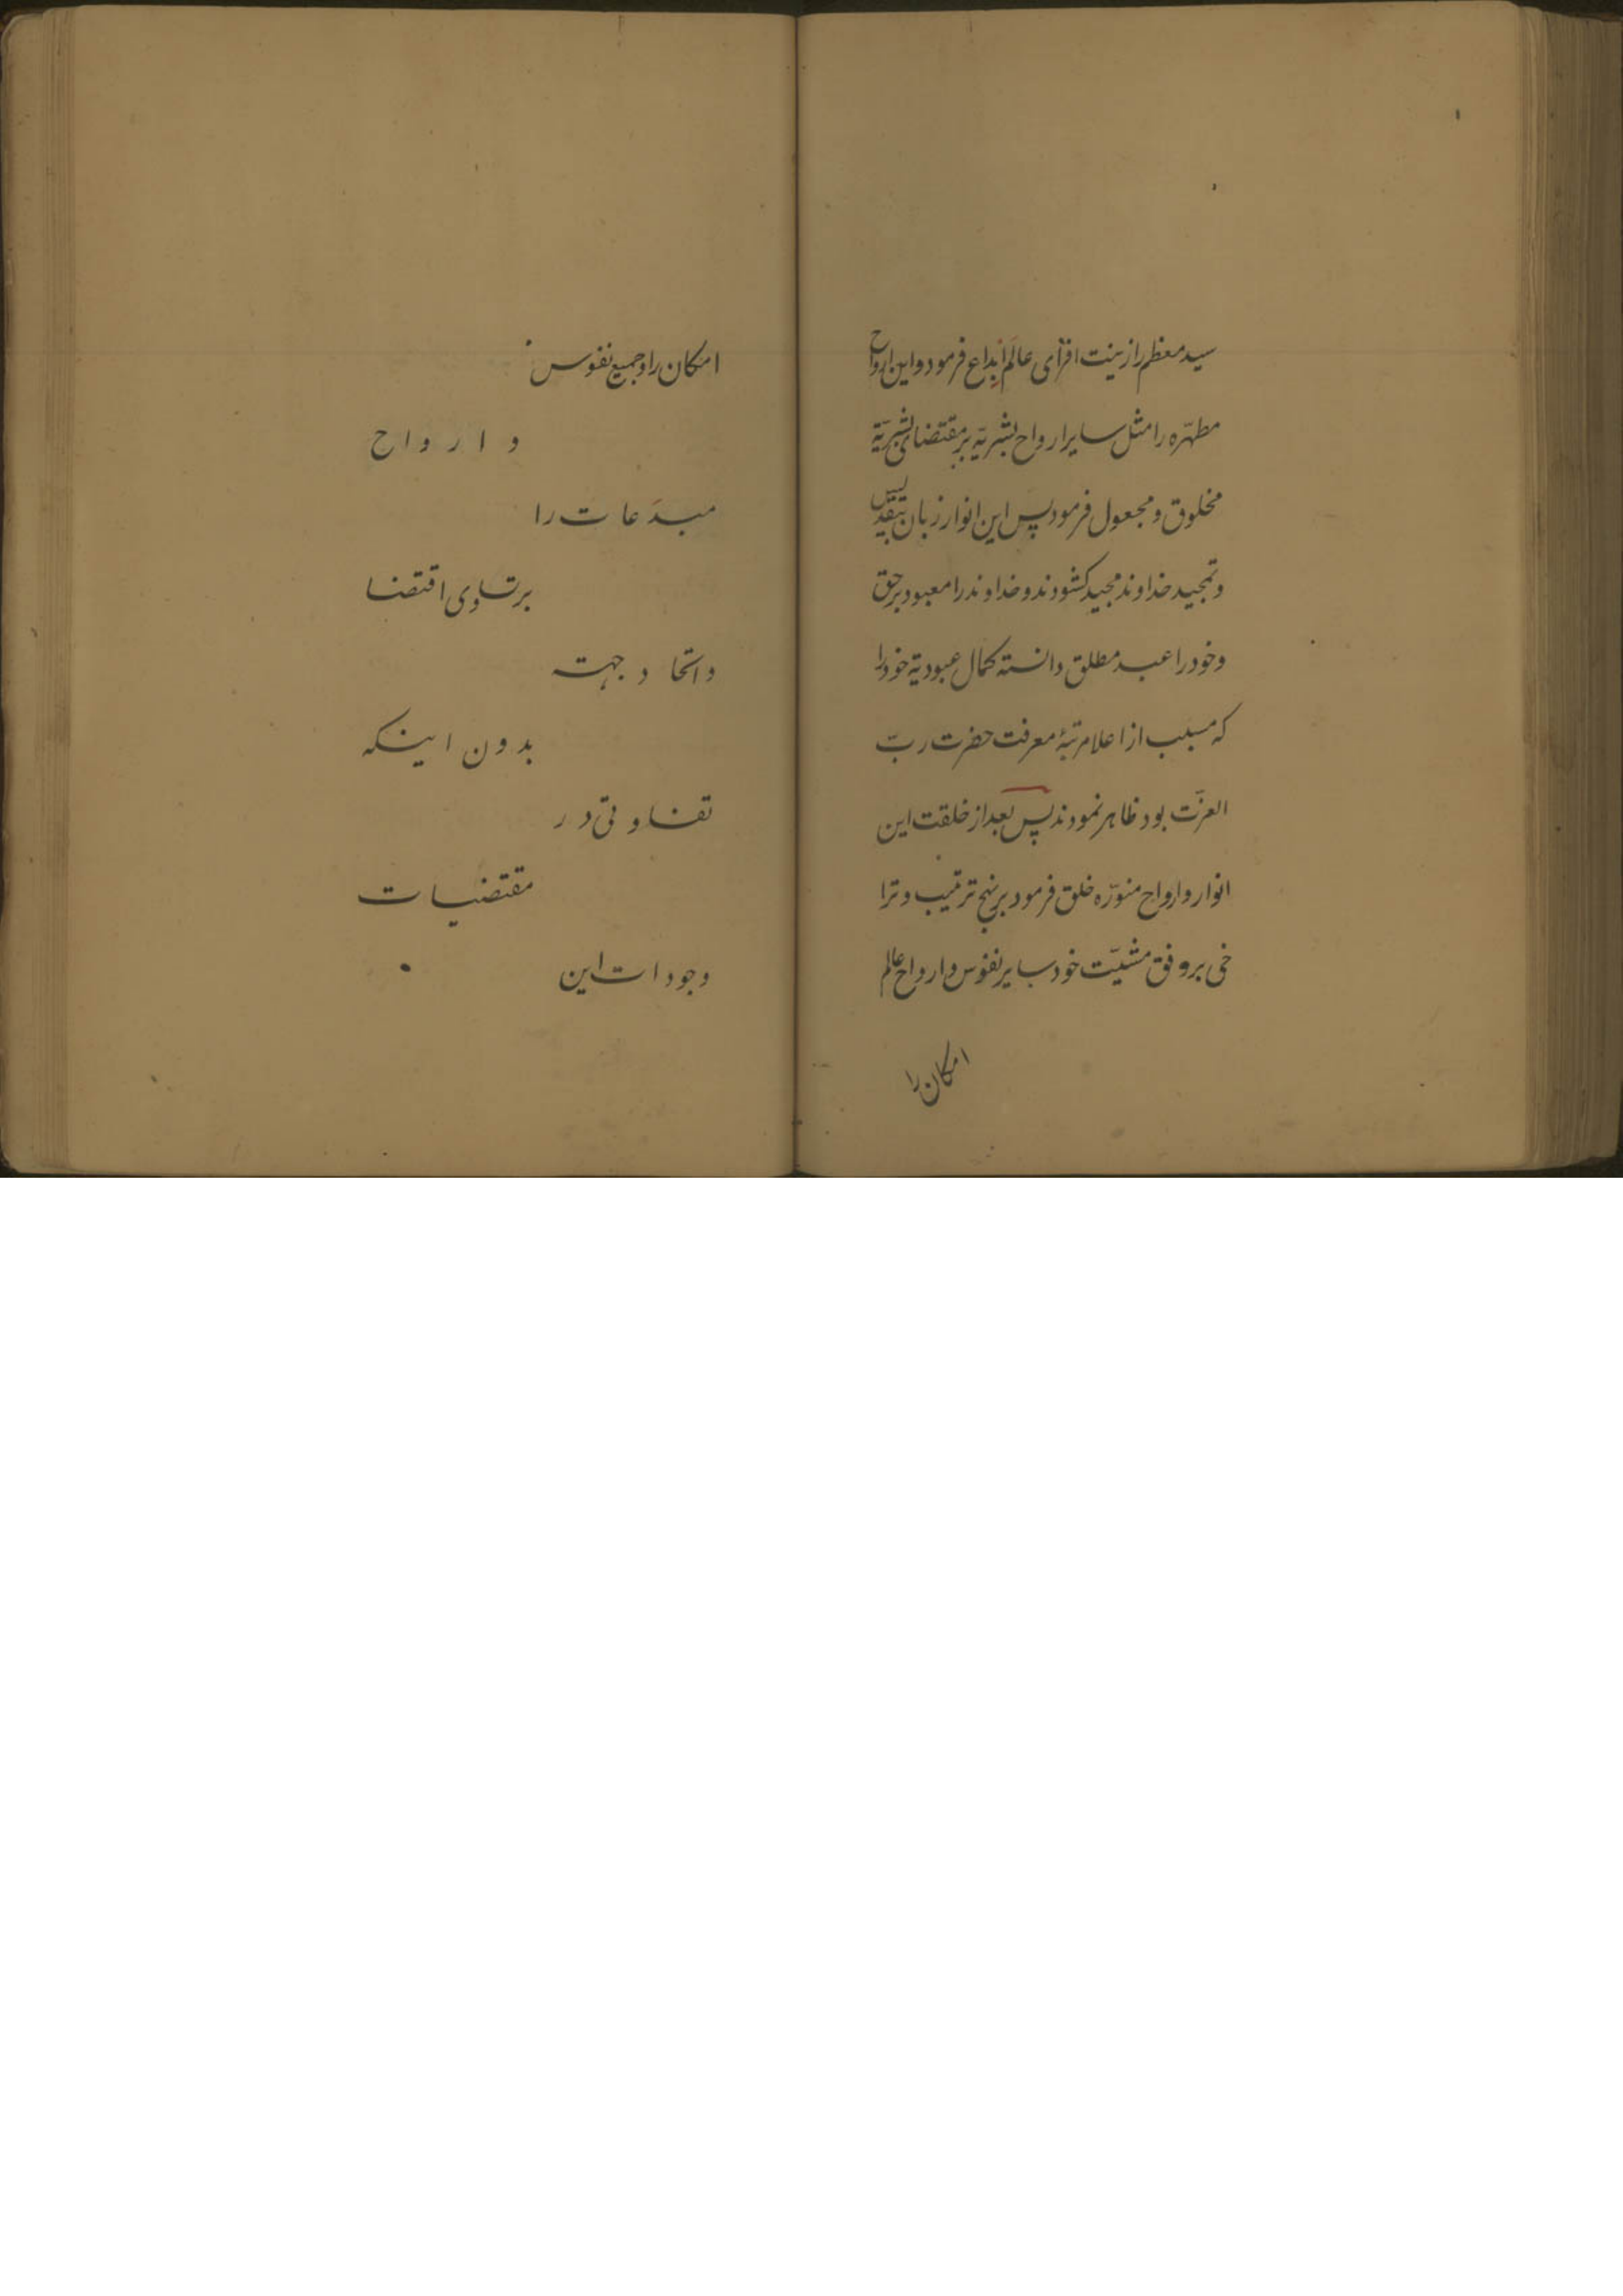 سید معظم را زینت افزای عالَم اَبداع فرمود و این ارواح
مطهّره را مثل سایر ارواح بشریّه بر مقتضای بشریّة
مخلوق و مجعول فرمود پس این انوار زبان بتقدیس
و تمجید خداوند مجید کشودند و خداوند را معبود برحق
و خود را عبد مطلق دانسته کمال عبودیة خود را
که مسبب از اعلا مرتبۀ معرفت حضرت ربّ
العزّت بود ظاهر نمودند پس بعد از خلقت این
انوار و ارواح منوّره خلق فرمود بر نهج ترتیب و ترا
خی بر وفق مشیّت خود سایر نفوس و ارواح عالم
امکان را
امکان را و جمیع نفوس
و ارواح
مبدَعات را
بر تساوی اقتضا
و اتّحاد جهت
بدون اینکه
تفاوتی در
مقتضیات
وجودات این